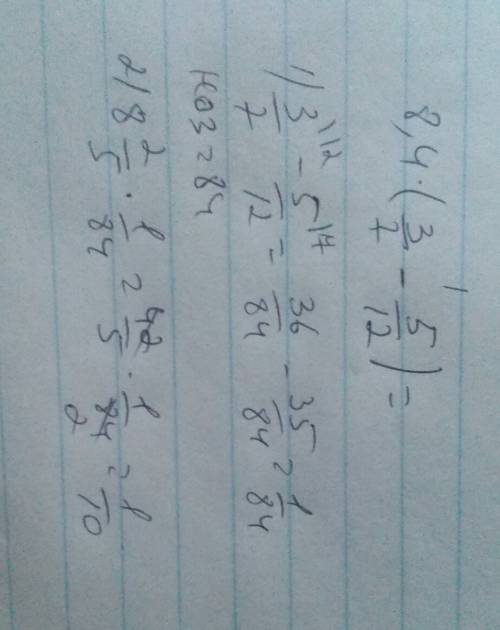 8,4 · (3/7 - 5/12) =
1) 3/7 \12 - 5/12 \7 = 36/84 - 35/84 = 1/84
НОЗ = 84
2) 8 2/5 · 1/84 = 42/5 · 1/84 2 = 1/10